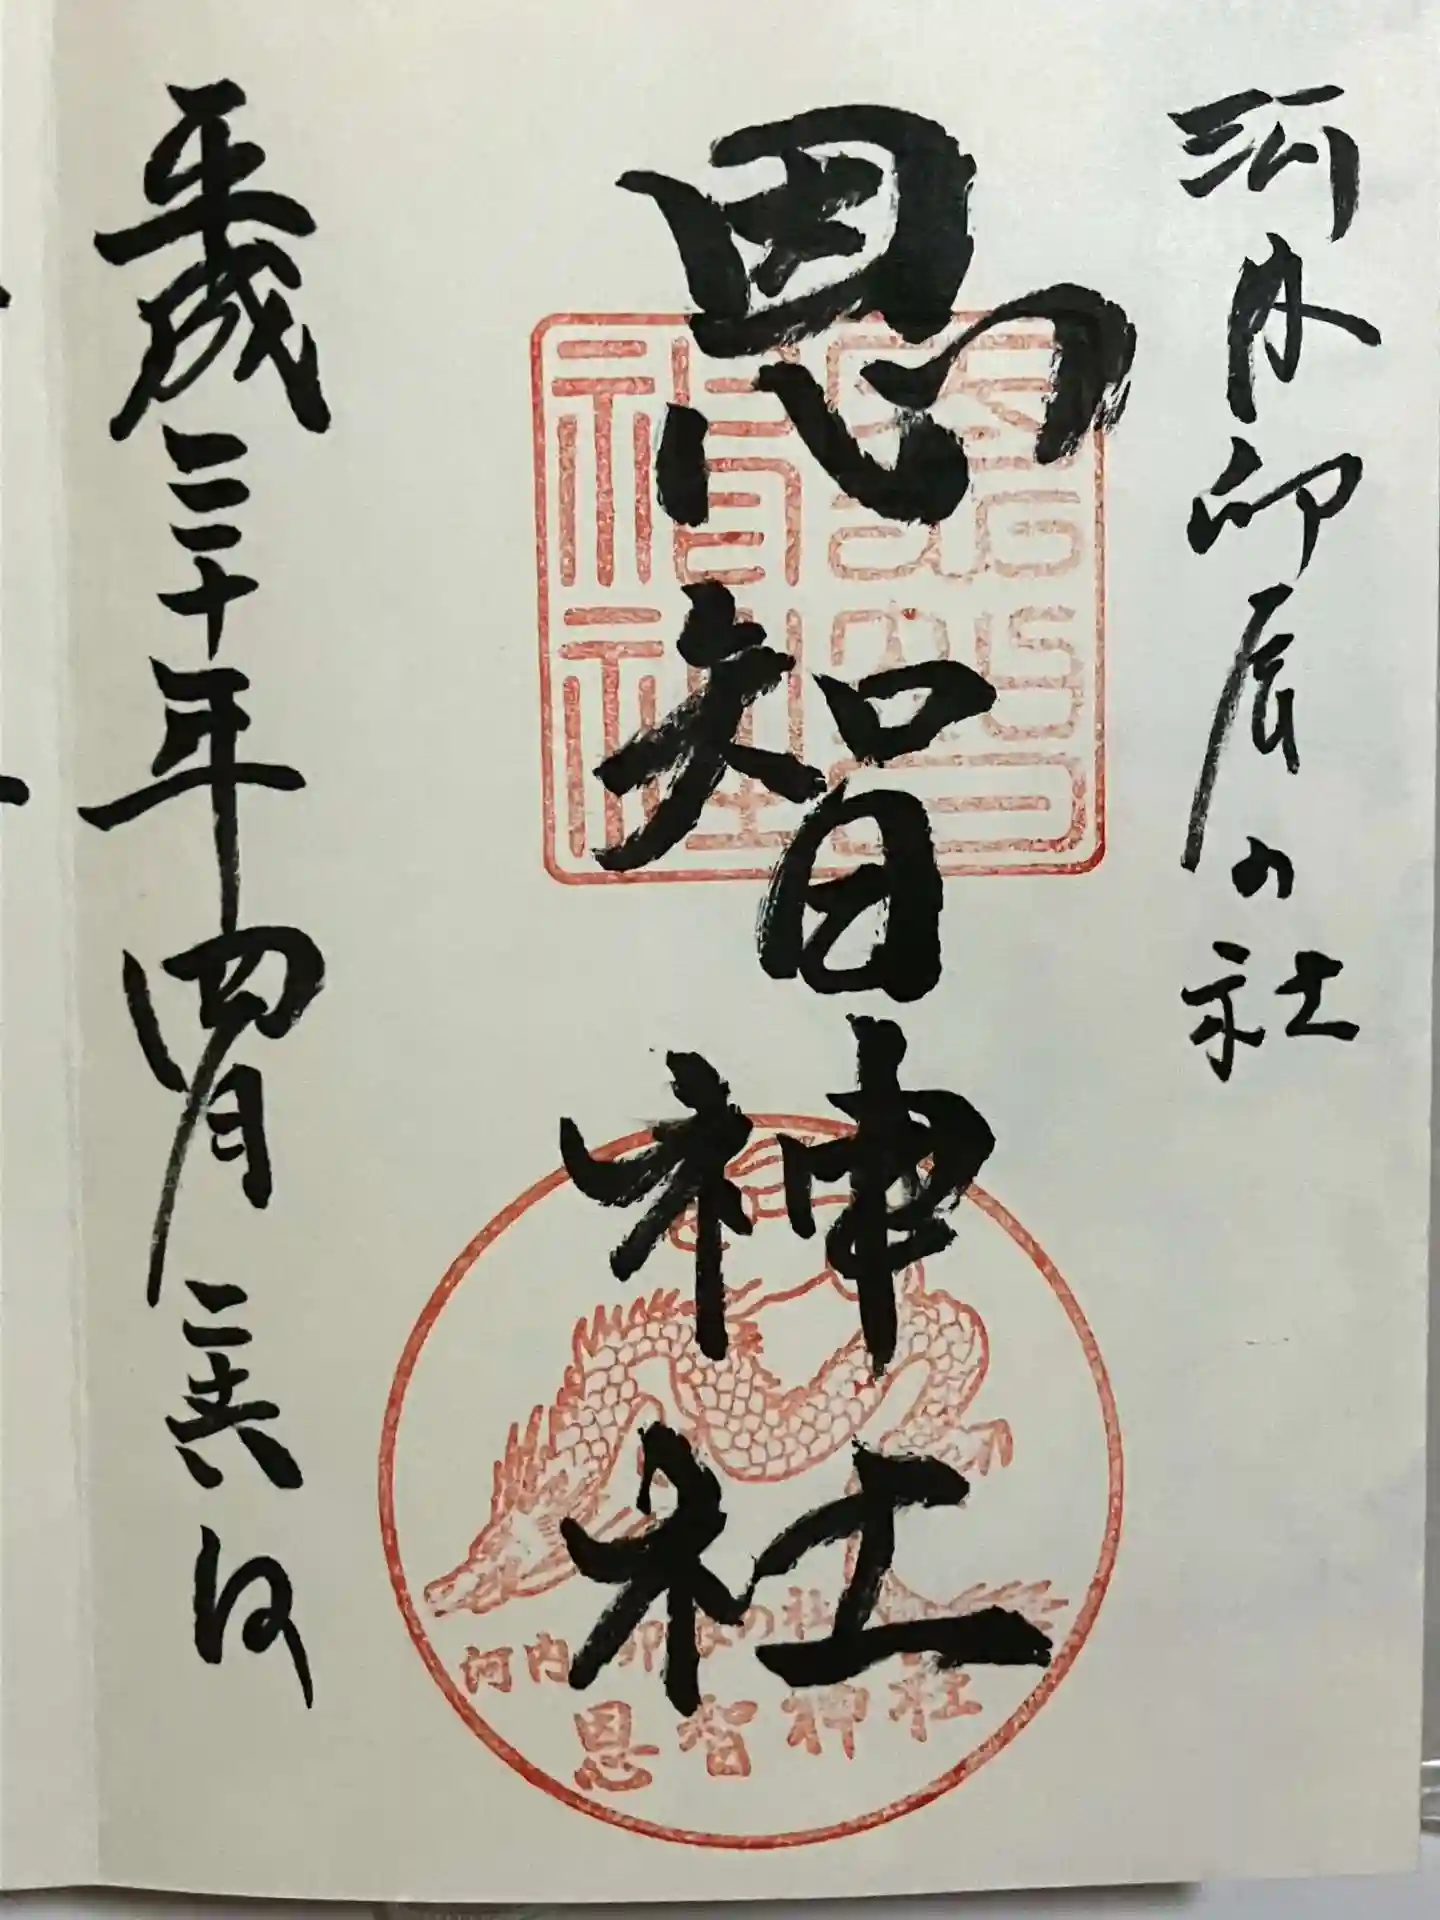 河内卯辰の社
恩智神社
平成三十年四月二十六日
恩智
神社
河内 卯辰の社
恩智神社